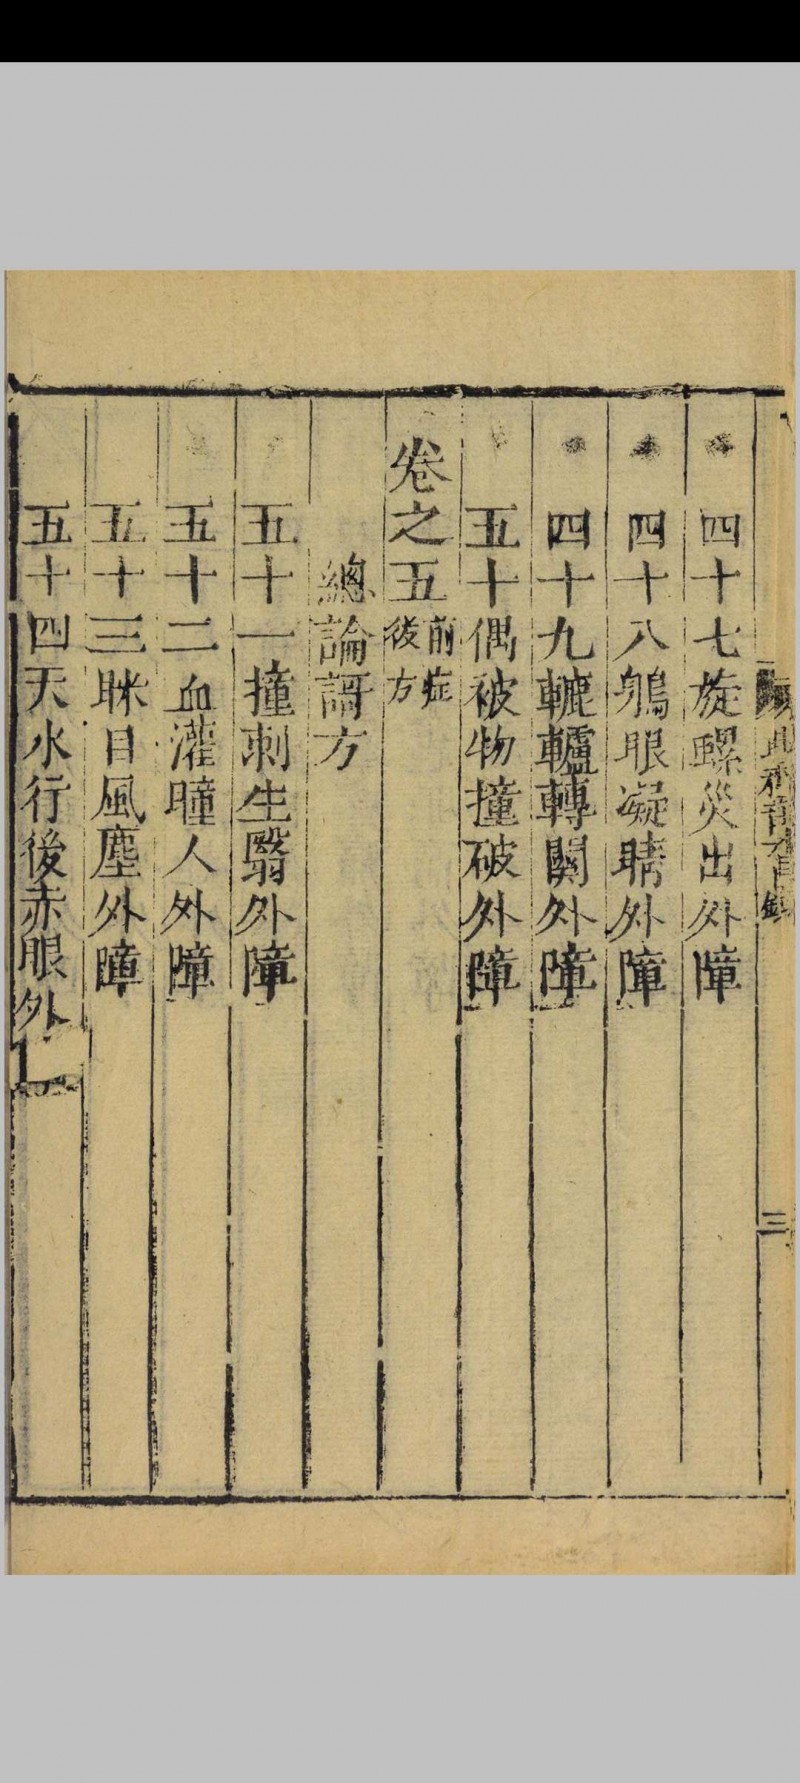 四十七旋螺災出外障
四十八鶻眼凝睛外障
四十九轆轤轉関外障
五十偶被物撞破外障
卷之五前症後方
總論謌方
五十一撞刺生翳外障
五十二血灌瞳人外障
五十三眯目風塵外障
五十四天水行後赤眼外
三